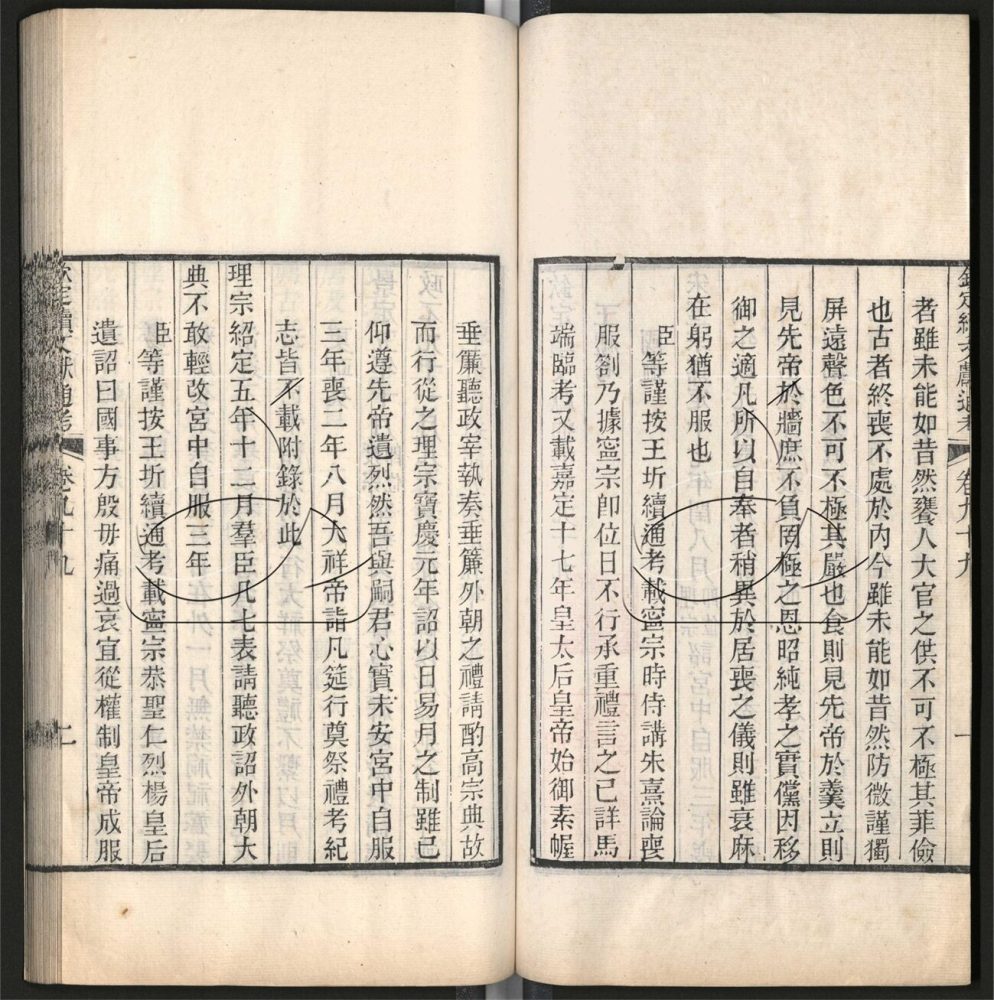 欽定續文獻通考 卷九十九 一
者雖未能如昔然饔人大官之供不可不極其菲儉
也古者終喪不處於內今雖未能如昔然防微謹獨
屏遠聲色不可不極其嚴也食則見先帝於羹立則
見先帝於牆庶不負罔極之恩昭純孝之實儻因移
御之適凡所以自奉者稍異於居喪之儀則雖衰麻
在躬猶不服也
臣等謹按王圻續通考載寧宗時侍講朱熹論喪
服劄乃據寧宗即位日不行承重禮言之已詳馬
端臨考又載嘉定十七年皇太后皇帝始御素幄
垂簾聽政宰執奏垂簾外朝之禮請酌高宗典故
而行從之理宗寶慶元年詔以日易月之制雖已
仰遵先帝遺烈然吾與嗣君心實未安宮中自服
三年喪二年八月大祥帝詣几筵行奠祭禮考紀
志皆不載附錄於此
理宗紹定五年十二月羣臣凡七表請聽政詔外朝大
典不敢輕改宮中自服三年
臣等謹按王圻續通考載寧宗恭聖仁烈楊皇后
遺詔曰國事方殷毋痛過哀宜從權制皇帝成服
欽定續文獻通考 卷九十九 二